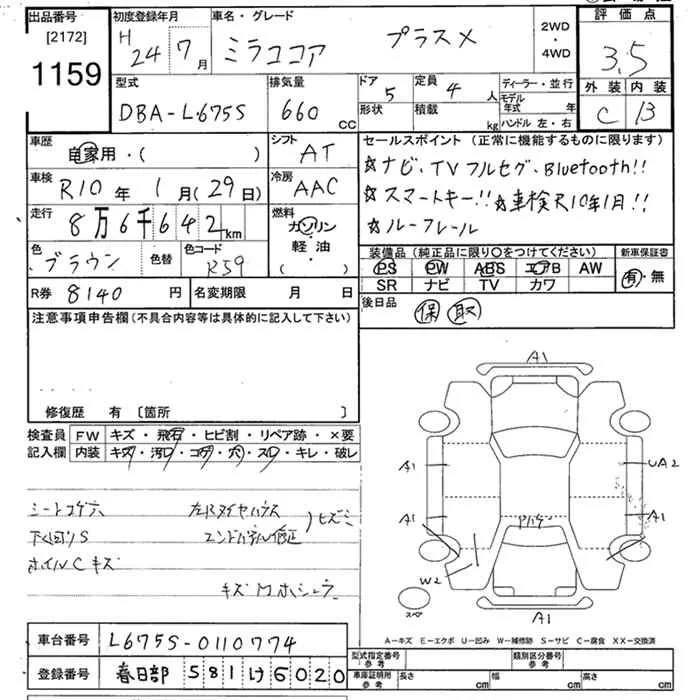 出品番号 初度登録年月 車名・グレード 2WD・4WD 評価点
[2172] 1159 H24年7月 ミラココア プラスX 3.5
外装 内装
C B
型式 排気量 ドア 定員 ディーラー・並行
DBA-L675S 660cc 5 4人 モデル年式 年
形状 積載 kg ハンドル 左・右
車歴 自家用・( ) シフト AT
セールスポイント (正常に機能するものに限ります)
☆ナビ、TVフルセグ、Bluetooth!!
☆スマートキー!! ☆車検R10年1月!!
☆ルーフレール
車検 R10年1月(29日) 冷房 AAC
走行 8万6千642km 燃料 ガソリン 軽油 ( )
色 ブラウン 色替 色コード R59
装備品 (純正品に限り〇をつけてください) 新車保証書
PS PW ABS エアB AW 有・無
SR ナビ TV カワ
R券 8140円 名変期限 月 日
後日品 保 取
注意事項申告欄 (不具合内容等は具体的に記入して下さい)
修復歴 有 [箇所 ]
検査員記入欄 FW キズ・飛石・ヒビ割・リペア跡・×要
内装 キズ・汚レ・コゲ・穴・スレ・キレ・破レ
シートコゲ穴
下回りS
ホイルCキズ
エンドパネル修正
ヒズミ
A1
A1 UA2
A1 A1
W2
スペア
A1
A-キズ E-エクボ U-凹み W-補修跡 S-サビ C-腐食 XX-交換済
車台番号 L675S-0110774
登録番号 春日部 581 け 6020
型式指定番号 参考 類別区分番号 参考
車庫証明用 参考 長さ cm 幅 cm 高さ cm